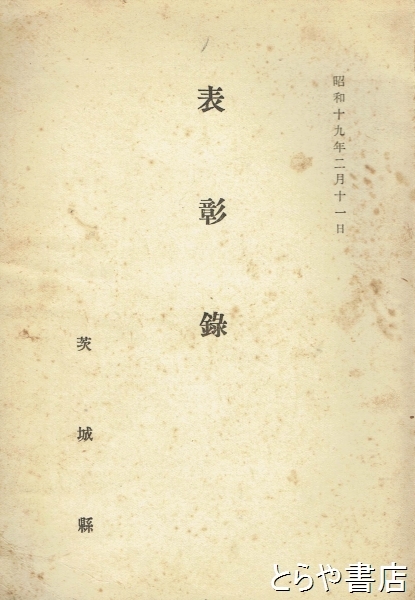 昭和十九年二月十一日
表彰錄
茨城縣
とらや書店